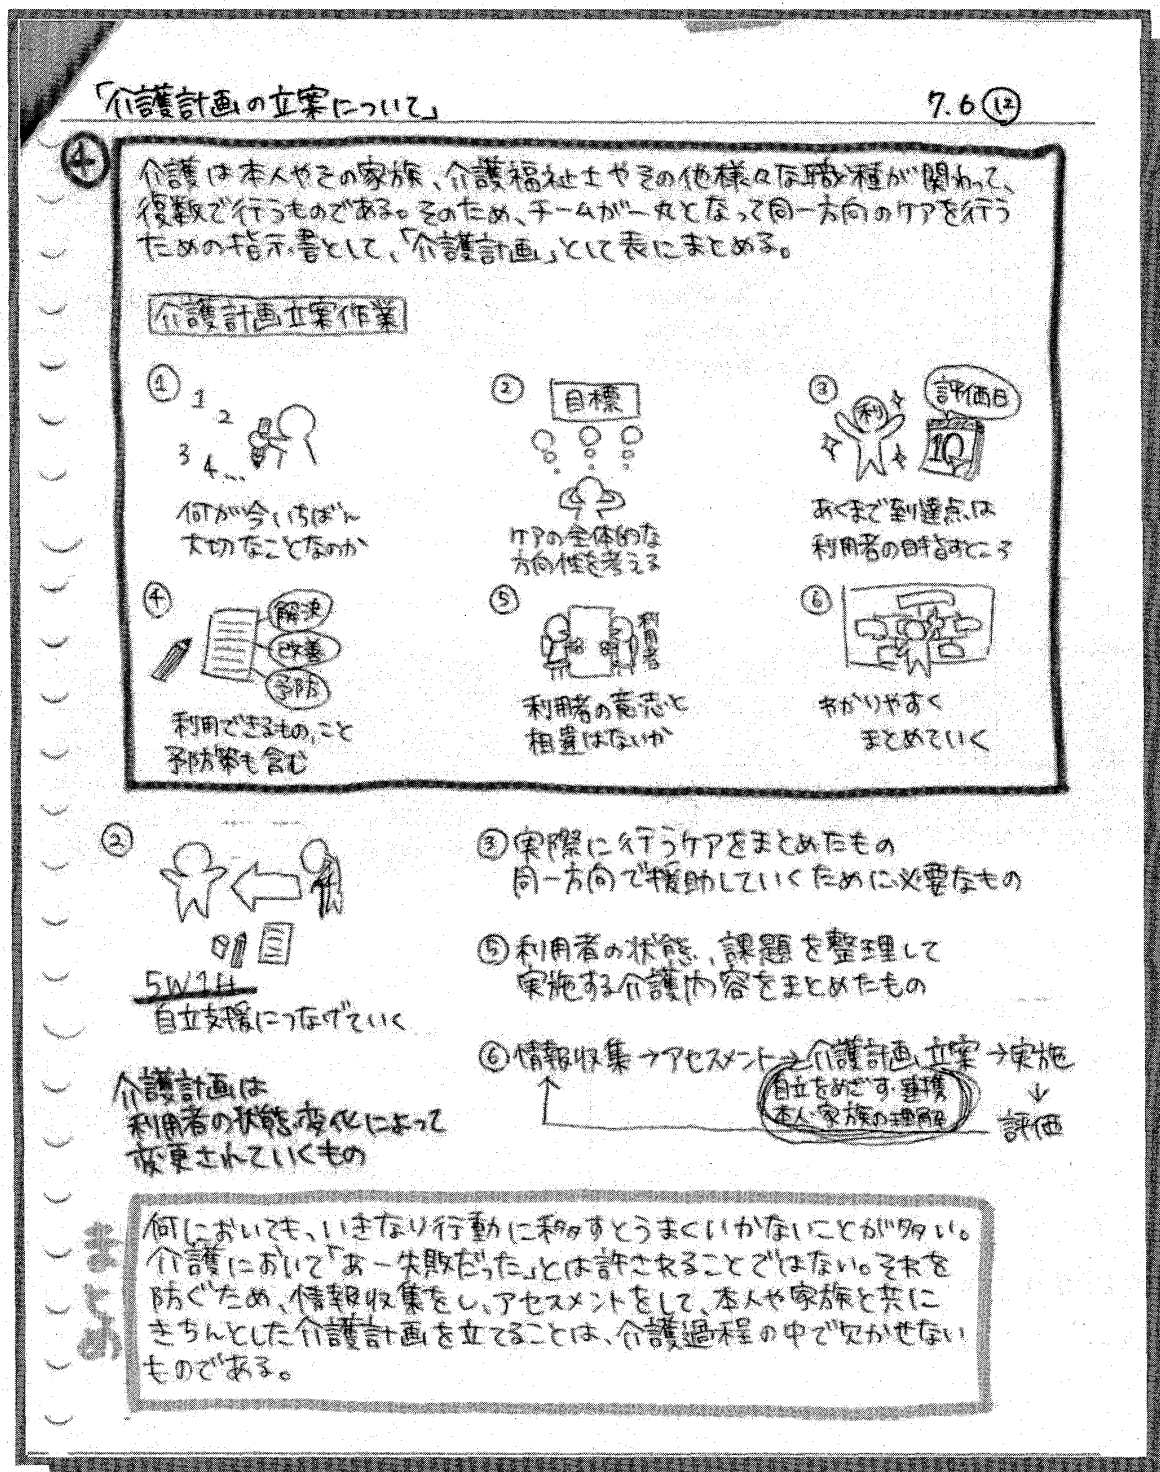 「介護計画の立案について」
7.6 ⑫
④
介護は本人やその家族、介護福祉士やその他様々な職種が関わって、
複数で行うものである。そのため、チームが一丸となって同一方向のケアを行う
ための指示書として、「介護計画」として表にまとめる。
介護計画立案作業
①
1
2
3
4...
何が今いちばん
大切なことなのか
②
目標
ケアの全体的な
方向性を考える
③
利
評価日
10
あくまで到達点は
利用者の目指すところ
④
解決
改善
予防
利用できるもの、こと
予防策も含む
⑤
利用者
利用者の意志と
相違はないか
⑥
わかりやすく
まとめていく
②
5W1H
自立支援につなげていく
介護計画は
利用者の状態変化によって
変更されていくもの
③実際に行うケアをまとめたもの
同一方向で援助していくために必要なもの
⑤利用者の状態、課題を整理して
実施する介護内容をまとめたもの
⑥情報収集→アセスメント→介護計画立案→実施
↓
自立をめざす・連携
本人・家族の理解
評価
まとめ
何においても、いきなり行動に移すとうまくいかないことが多い。
介護において「あー失敗だった」とは許されることではない。それを
防ぐため、情報収集をし、アセスメントをして、本人や家族と共に
きちんとした介護計画を立てることは、介護過程の中で欠かせない
ものである。